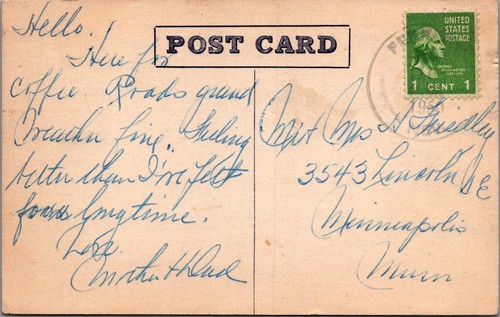 Hello.
Here for
coffee Roads grand
weather fine. Feeling
better than I've felt
for a long time.
Love.
Mother & Dad
POST CARD
UNITED
STATES
POSTAGE
1 CENT 1
Mr & Mrs H
3543 Lincoln
Minneapolis
Minn